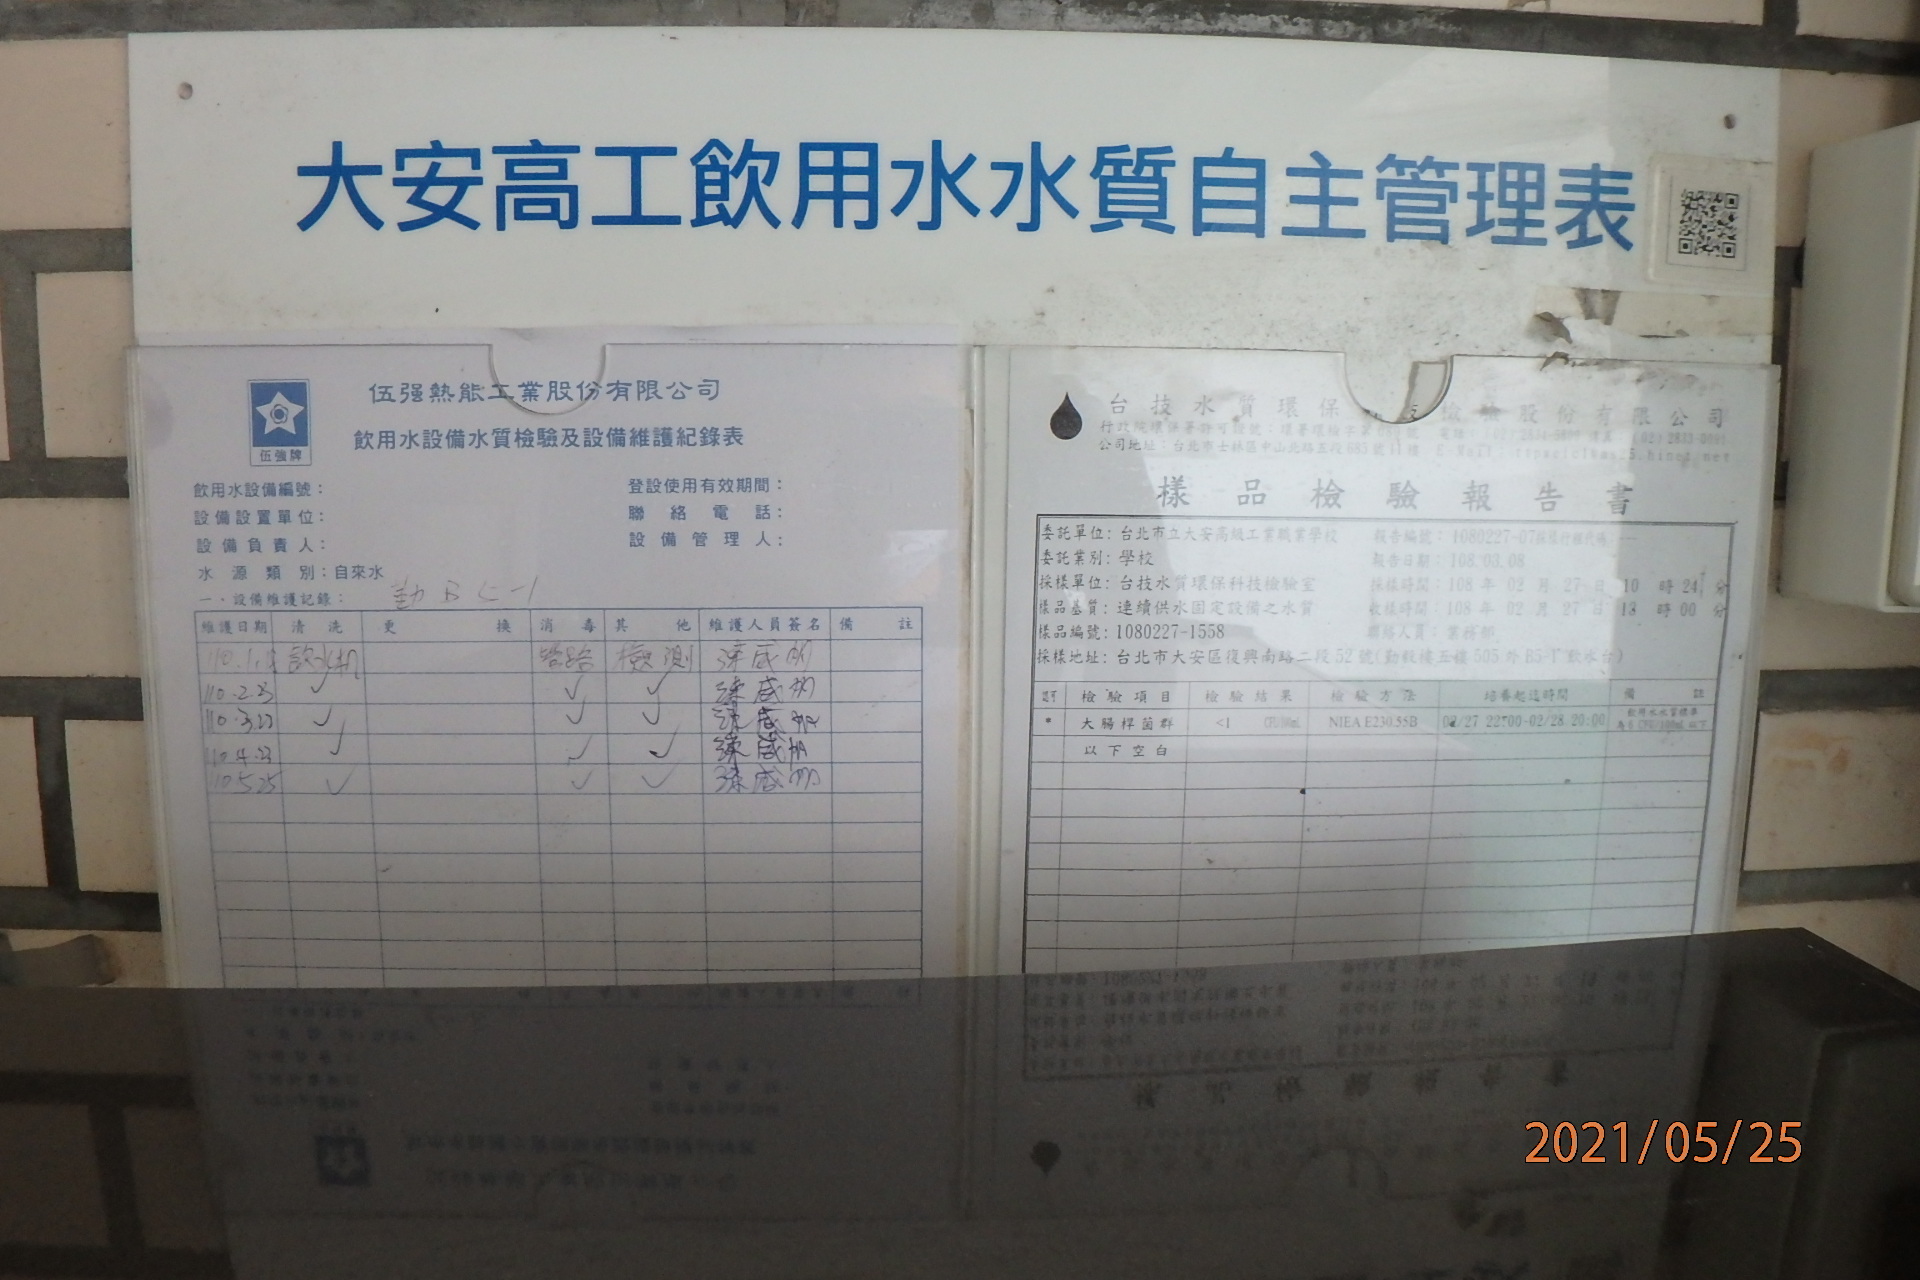 大安高工飲用水水質自主管理表
伍強牌
伍强熱能工業股份有限公司
飲用水設備水質檢驗及設備維護紀錄表
飲用水設備編號：
設備設置單位：
設備負責人：
水源類別：自來水
登設使用有效期間：
聯絡電話：
設備管理人：
一、設備維護記錄：
維護日期 清洗 更換 消毒 其他 維護人員簽名 備註
飲水机 管路 檢測
110.2.23 ✓ ✓ ✓
110.3.23 ✓ ✓ ✓
110.4.23 ✓ ✓ ✓
110.5.25 ✓ ✓ ✓
台技水質環保 檢驗股份有限公司
公司地址：台北市士林區中山北路五段685號11樓
樣品檢驗報告書
委託單位：台北市立大安高級工業職業學校 報告編號：1080227-07
委託業別：學校 報告日期：108.03.08
採樣單位：台技水質環保科技檢驗室 採樣時間：108年02月27日10時24分
樣品基質：連續供水固定設備之水質 收樣時間：108年02月27日13時00分
樣品編號：1080227-1558 聯絡人員：業務部
採樣地址：台北市大安區復興南路二段52號(勤毅樓五樓505外B5-1飲水台)
認可 檢驗項目 檢驗結果 檢驗方法 培養起迄時間 備註
* 大腸桿菌群 <1 CFU/100mL NIEA E230.55B 02/27 22:00-02/28 20:00 飲用水水質標準
為6 CFU/100mL以下
以下空白
2021/05/25